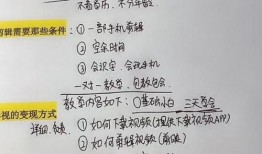 不看学历、不分年龄
剪辑需要那些条件：①一部手机剪辑
②空余时间
③会识字、会玩手机
一对一教学，包教包会
教学内容如下：①基础小白 三天学会
视的变现方式
详细、食谱
①如何下载视频(提供下载视频APP)
②如何剪辑视频(剪映)